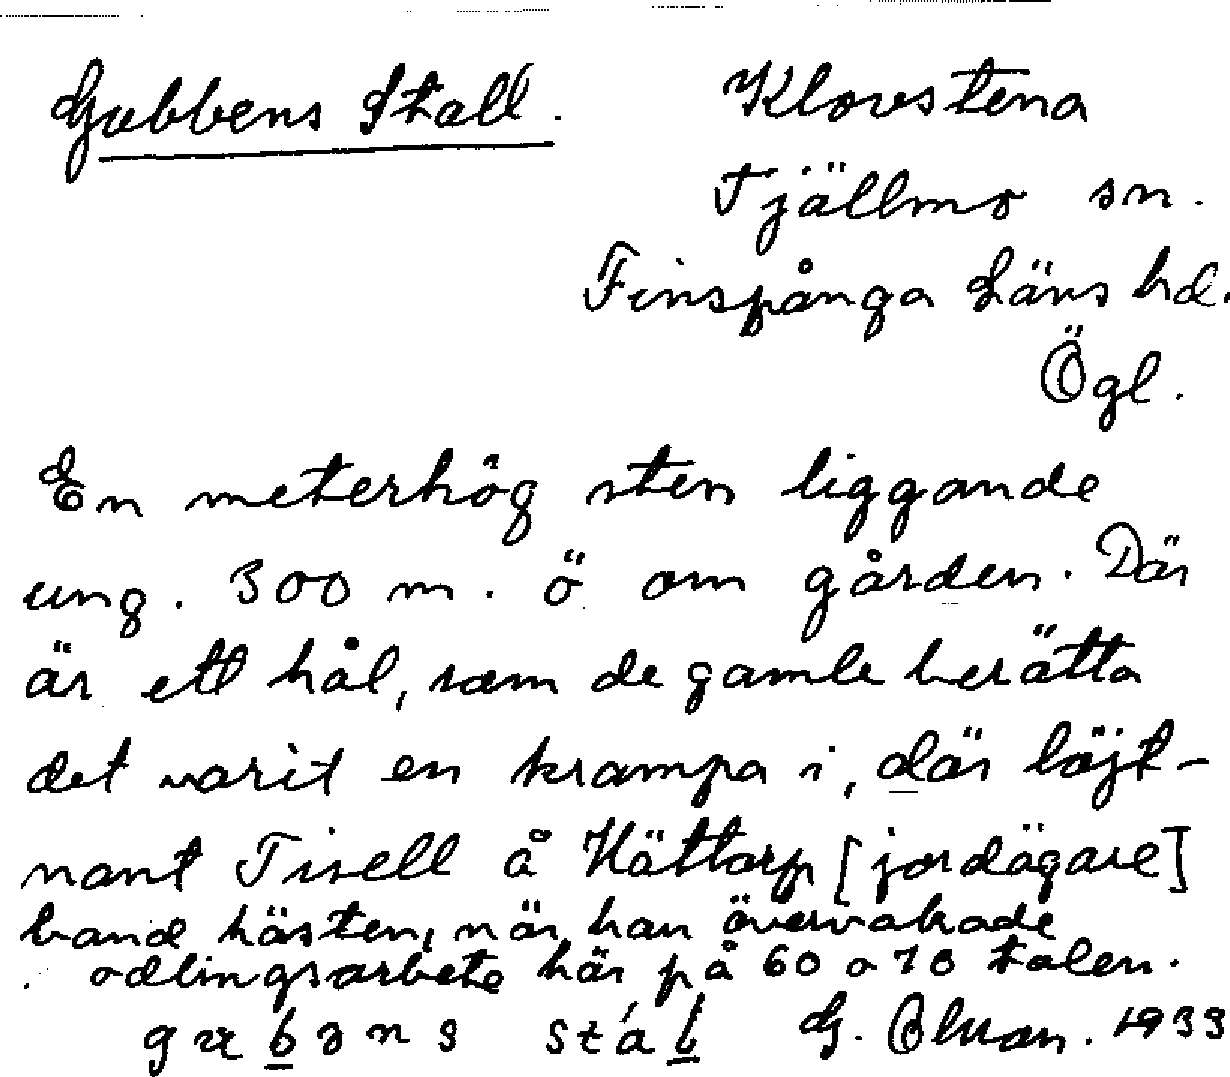 Gubbens Stall.
Klovstena
Tjällmo sn.
Finspånga Läns hd.
Ögl.
En meterhög sten liggande
ung. 300 m. ö om gården. Där
är ett hål, som de gamle berätta
det varit en krampa i, där löjt-
nant Tisell å Hättorp [jordägare]
band hästen, när han övervakade
odlingsarbete här på 60 o 70 talen.
G. 1933